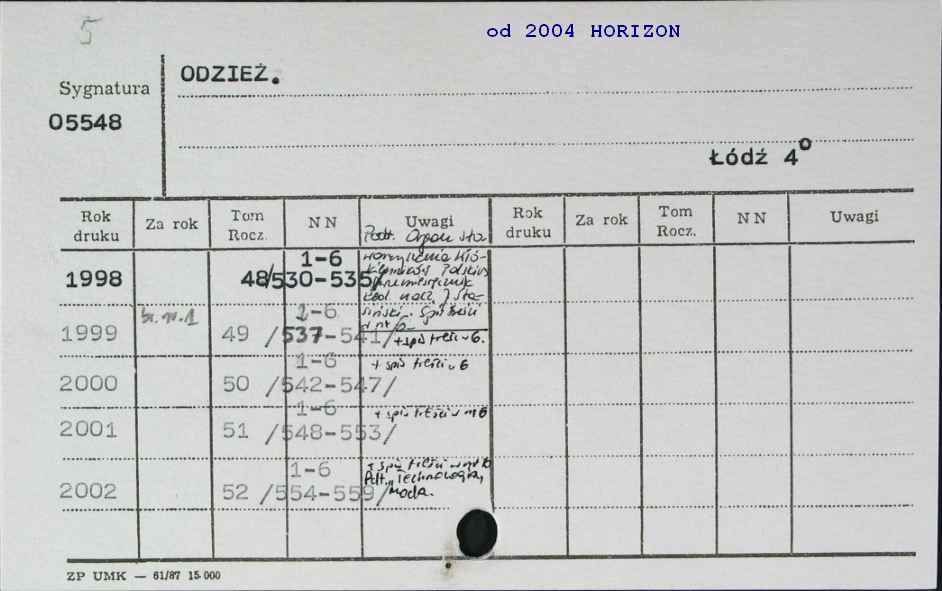 5
od 2004 HORIZON
Sygnatura
ODZIEŻ.
05548
Łódź 4°
Rok druku Za rok Tom Rocz. NN Uwagi Rok druku Za rok Tom Rocz. NN Uwagi
Podt. Organ Sto
1-6
1998 48/530-535/
Red. nacz. J. Sta-
siński. Spis treści
w nr 6
br. nr. 1 1-6
1999 49 /537-541/ + spis treści w 6.
1-6 + spis treści w 6
2000 50 /542-547/
1-6 + spis treści w nr 6
2001 51 /548-553/
1-6 + spis treści w nr 6
Technologia,
2002 52 /554-559/ Moda.
ZP UMK — 61/87 15.000